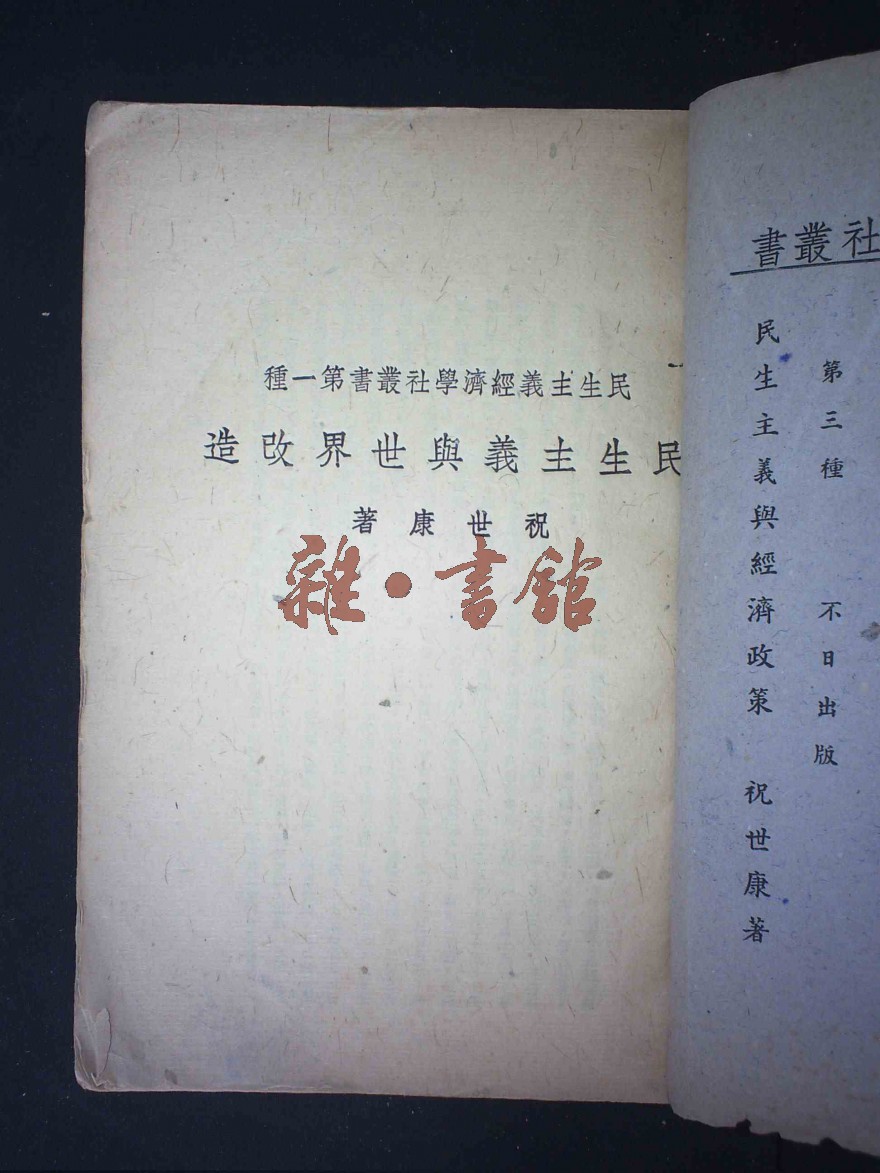 民生主義經濟學社叢書第一種
民生主義與世界改造
祝世康著
雜·書館
社叢書
第三種 不日出版
民生主義與經濟政策 祝世康著